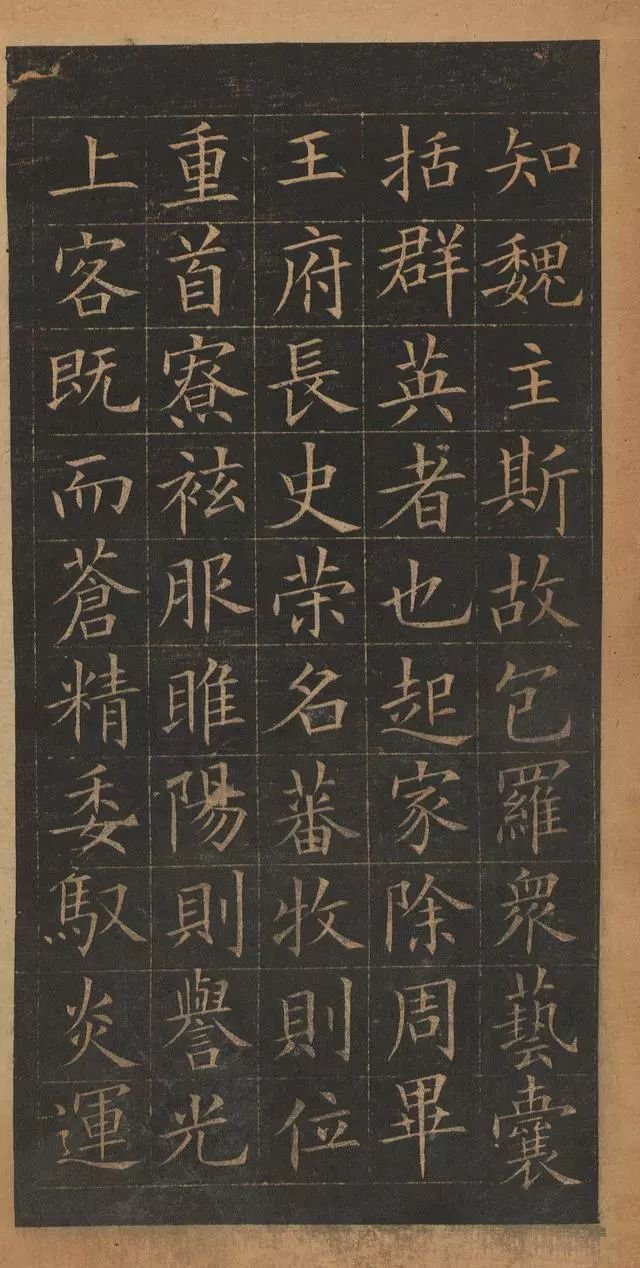 知魏主斯故包羅眾藝囊
括群英者也起家除周畢
王府長史荣名蕃牧則位
重首寮袨服睢陽則譽光
上客既而蒼精委馭炎運